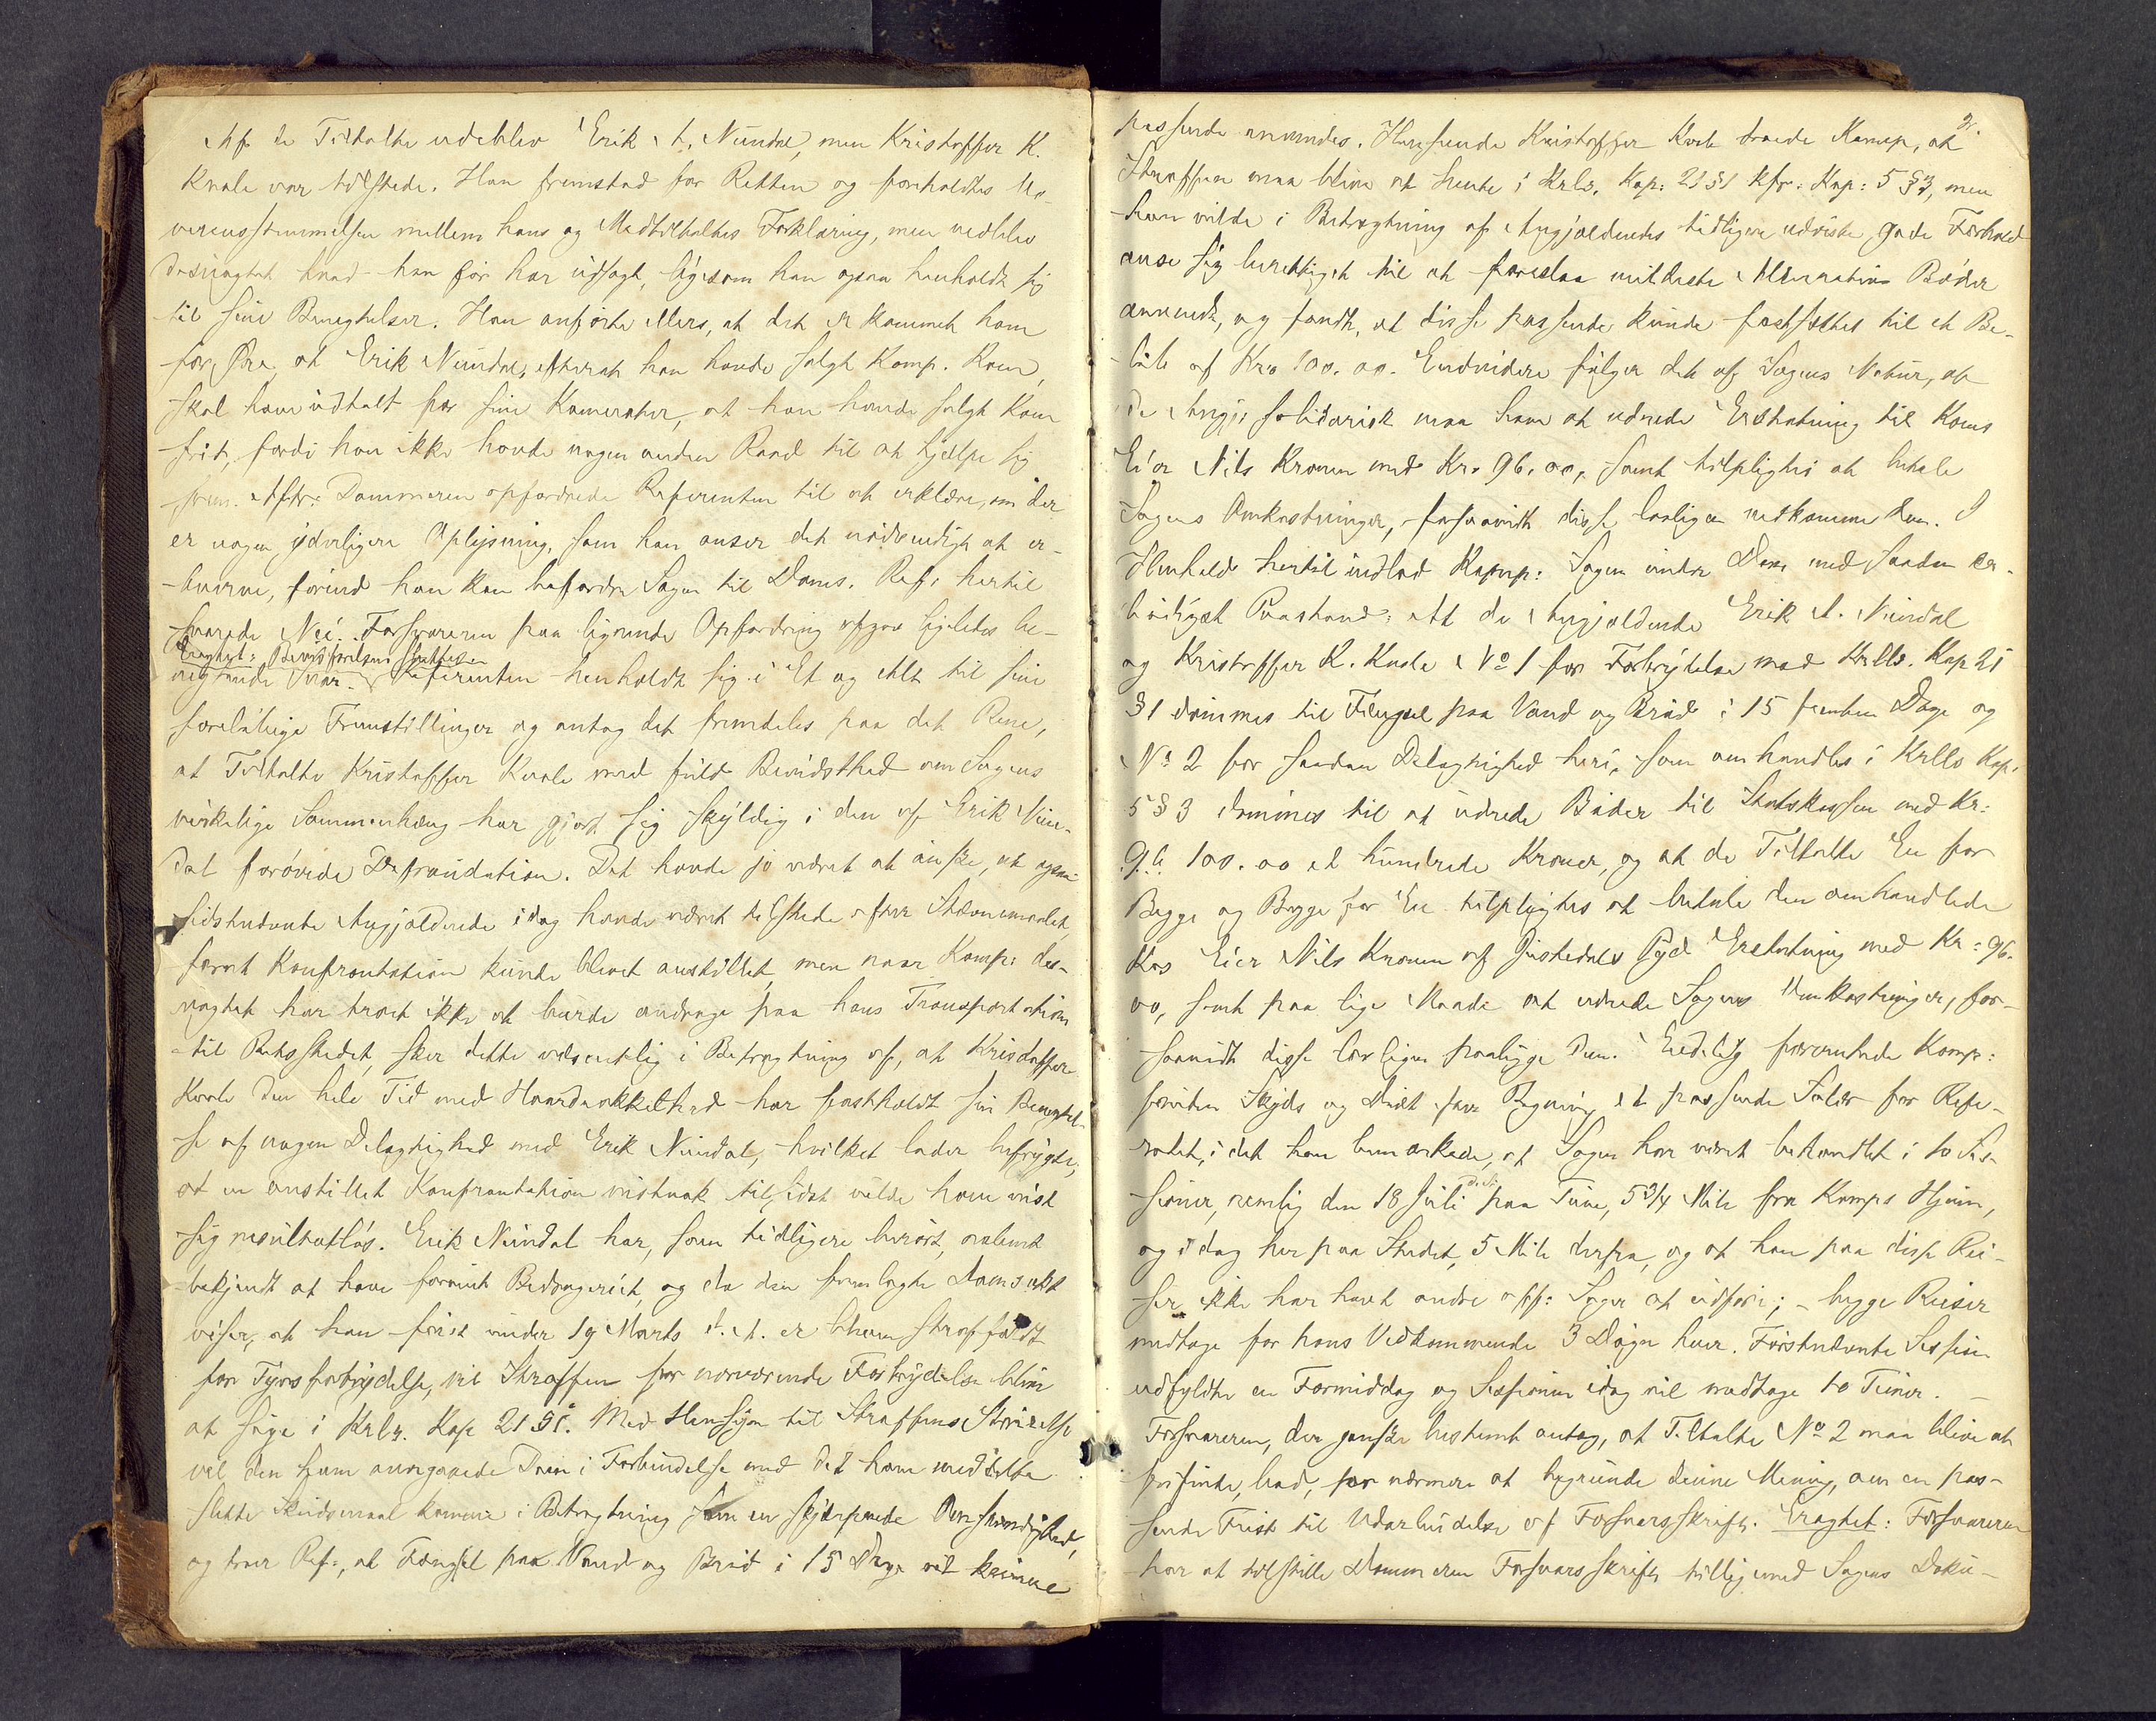 Af de Tiltalte udeblev Erik A. Nundal, men Kristoffer K.
Kvale var tilstede. Han fremstod for Retten og foreholdtes Uo-
verensstemmelsen mellem hans og Medtiltaltes Forklaring, men vedblev
desuagtet hvad han før har udsagt, ligesom han ogsaa henholdt sig
til sine Benegtelser. Han anførte ellers, at det er kommet ham
for Øre, at Erik Nundal, efterat han havde solgt Komp. Koen,
skal have udtalt for sine Kamerater, at han havde solgt Koen
frit, fordi han ikke havde nogen anden Raad til at hjelpe sig
frem. Adm: Dommeren opfordrede Referenten til at erklære, om der
er nogen yderligere Oplysning, som han anser det nødvendigt at er-
hverve, førend han kan befordre Sagen til Doms. Ref: hertil
svarede Nei. Forsvareren paa lignende Opfordring afgav ligeledes be-
Eragtet: Bevisførelsen sluttes.
negtende Svar. Referenten henholdt sig i Et og Alt til sine
foreløbige Fremstillinger og antog det fremdeles paa det Rene,
at Tiltalte Kristoffer Kvale med fuld Bevidsthed om Sagens
virkelige Sammenhæng har gjort sig skyldig i den af Erik Nun-
dal forøvede Defraudation. Det havde jo været at ønske, at ogsaa
sidstnævnte Angjældende idag havde været tilstede efter Stævnemaalet,
forat Konfrontation kunde blevet anstillet, men naar Komp: des-
uagtet har troet ikke at burde andrage paa hans Transportation
til Retsstedet, sker dette væsentlig i Betragtning af, at Kristoffer
Kvale den hele Tid med Haardnakkethed har fastholdt sin Benegtel-
se af nogen Delagtighed med Erik Nundal, hvilket lader befrygte,
at en anstillet Konfrontation vistnok tilsidst vilde have vist
sig resultatløs. Erik Nundal har, som tidligere berørt, aabent
bekjendt at have forøvet Bedrageriet, og da den fremlagte Domsakt
viser, at han først under 19 Marts d. A. er bleven straffældt
for Tyvsforbrydelse, vil Straffen for nærværende Forbrydelse blive
at søge i Krlv. Kap 21 § 1. Med Hensyn til Straffens Størrelse
vil den ham overgaaede Dom i Forbindelse med det ham meddelte
slette Skudsmaal komme i Betragtning som en skjærpende Omstændighed,
og tror Ref:, at Fængsel paa Vand og Brød i 15 Dage vil kunne
2.
passende anvendes. Henseende Kristoffer Kvale troede Komp, at
Straffen maa blive at hente i Krlv. Kap: 21 § 1 kfr: Kap: 5 § 3, men
han vilde i Betragtning af Angjældendes tidligere udviste gode Forhold
anse sig berettiget til at foreslaa mildeste Alternativ Bøder
anvendt, og fandt, at disse passende kunde fastsættes til et Be-
løb af Kro 100.00. Endvidere følger det af Sagens Natur, at
de Angj: solidarisk maa have at udrede Erstatning til Koens
Eier Nils Kronen med Kr. 96.00, samt tilpligtes at betale
Sagens Omkostninger, forsaavidt disse lovligen vedkomme dem. I
Henhold hertil indlod Komp: Sagen under Dom med saadan ær-
bødigst Paastand: at de Angjældende Erik A. Nundal
og Kristoffer K. Kvale No 1 for Forbrydelse mod Krllv. Kap 21
§ 1 dømmes til Fængsel paa Vand og Brød i 15 femten Dage og
No 2 for saadan Delagtighed heri, som omhandles i Krllv Kap.
5 § 3 dømmes til at udrede Bøder til Statskassen med Kr:
100.00 et hundrede Kroner, og at de Tiltalte En for
Begge og Begge for En tilpligtes at betale den omhandlede
Kos Eier Nils Kronen af Justedals Sogn Erstatning med Kr: 96.
00, samt paa lige Maade at udrede Sagens Omkostninger, for-
saavidt disse lovligen paaligge dem. Endelig formente Komp:
foruden Skyds og Diæt efter Regning et passende Salær for Refe-
ratet, idet han bemærkede, at Sagen har været behandlet i to Ses-
sioner, nemlig den 18 Juli paa Tune, 5 3/4 Mile fra Komps Hjem,
og idag her paa Stedet, 5 Mile derfra, og at han paa disse Rei-
ser ikke har havt andre off: Sager at udføre; – begge Reiser
medtage for hans Vedkommende 3 Døgn hver. Førstnævnte Session
udfyldte en Formiddag og Sessionen idag vil medtage to Timer. –
Forsvareren, der ganske bestemt antog, at Tiltalte No 2 maa blive at
frifinde, bad, for nærmere at begrunde denne Mening, om en pas-
sende Frist til Udarbeidelse af Forsvarsskrift. Eragtet: Forsvareren
har at tilstille Dommeren Forsvarsskrift tilligemed Sagens Doku-